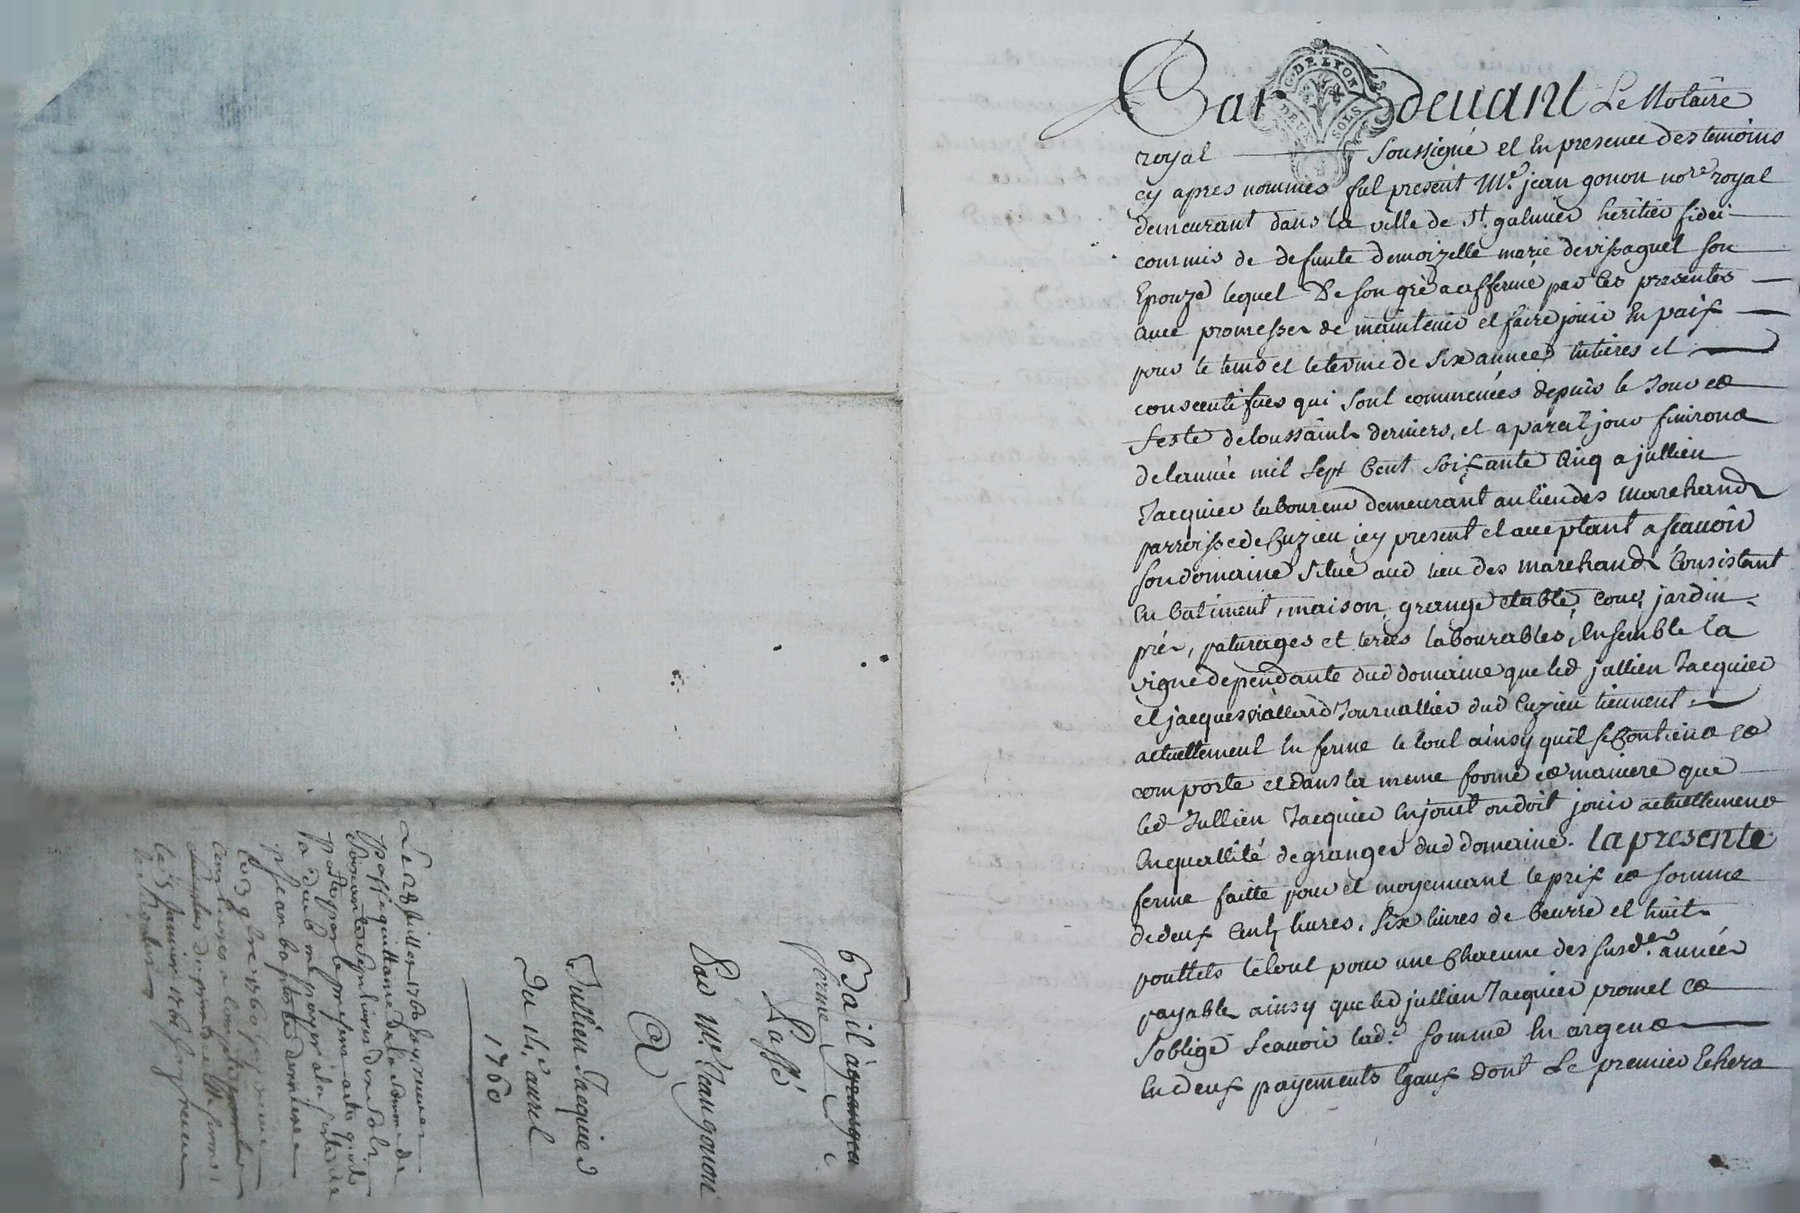 G. DE LYON
DEUX SOLS
Par devant Le Notaire
royal soussigné et En presence des temoins
cy apres nommes fut present Me. jean gonon nore royal
demeurant dans la ville de St. galmier heritier fidei
commis de defunte demoizelle marie devissaguet son
Epouze lequel De son gré a affermé par les presentes
avec promesses de maintenir et faire jouir En paix
pour le tems et le terme de six années Entieres et
consecutifves qui sont commencées depuis le Jour et
feste de toussaints derniers, et a pareil jour finiront
de lannée mil sept Cent soixante Cinq a jullien
Jacquier laboureur demeurant au lieu des marchands
parroisse de Cuzieu icy present et acceptant a scavoir
son domaine situé aud lieu des marchands Consistant
En batiment, maison, grange etable, cour, jardin
prés, paturages et terres labourables, Ensemble la
vigne dependante dud domaine que led jullien Jacquier
et jacques viallard Journallier dud Cuzieu tiennent
actuellement En ferme le tout ainsy quil se Contient et
comporte et dans la meme forme et maniere que
led Jullien Jacquier En jouit ou doit jouir actuellement
En quallité de granger dud domaine. la presente
ferme faitte pour et moyennant le prix et somme
de deux Cents livres, six livres de beurre et huit
poullets le tout pour une Chacunne des susdes. années
payable ainsy que led jullien Jacquier promet et
soblige scavoir lad.e somme En argent
En deux payements Egaux dont Le premier Echera
bail à granger
ferme
Passé
Par Me. Jean gonon
@
Jullien Jacquier
Du 14e. avril
1760
Le 28 juillet 1760
passé quittance de la somme de
la 3 9bre 1760
le 3 janvier 1761